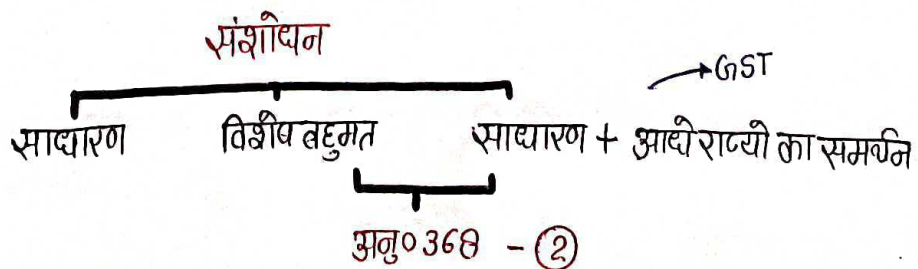 संशोधन
GST
साधारण विशेष बहुमत साधारण + आधे राज्यो का समर्थन
अनु० 368 - 2